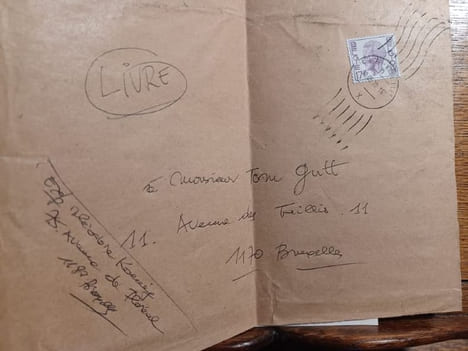 LIVRE
à Monsieur Tom Gutt
11. Avenue des Taillis. 11
1170 Bruxelles
Exp Théodore Koenig
Avenue de Floréal
Bruxelles